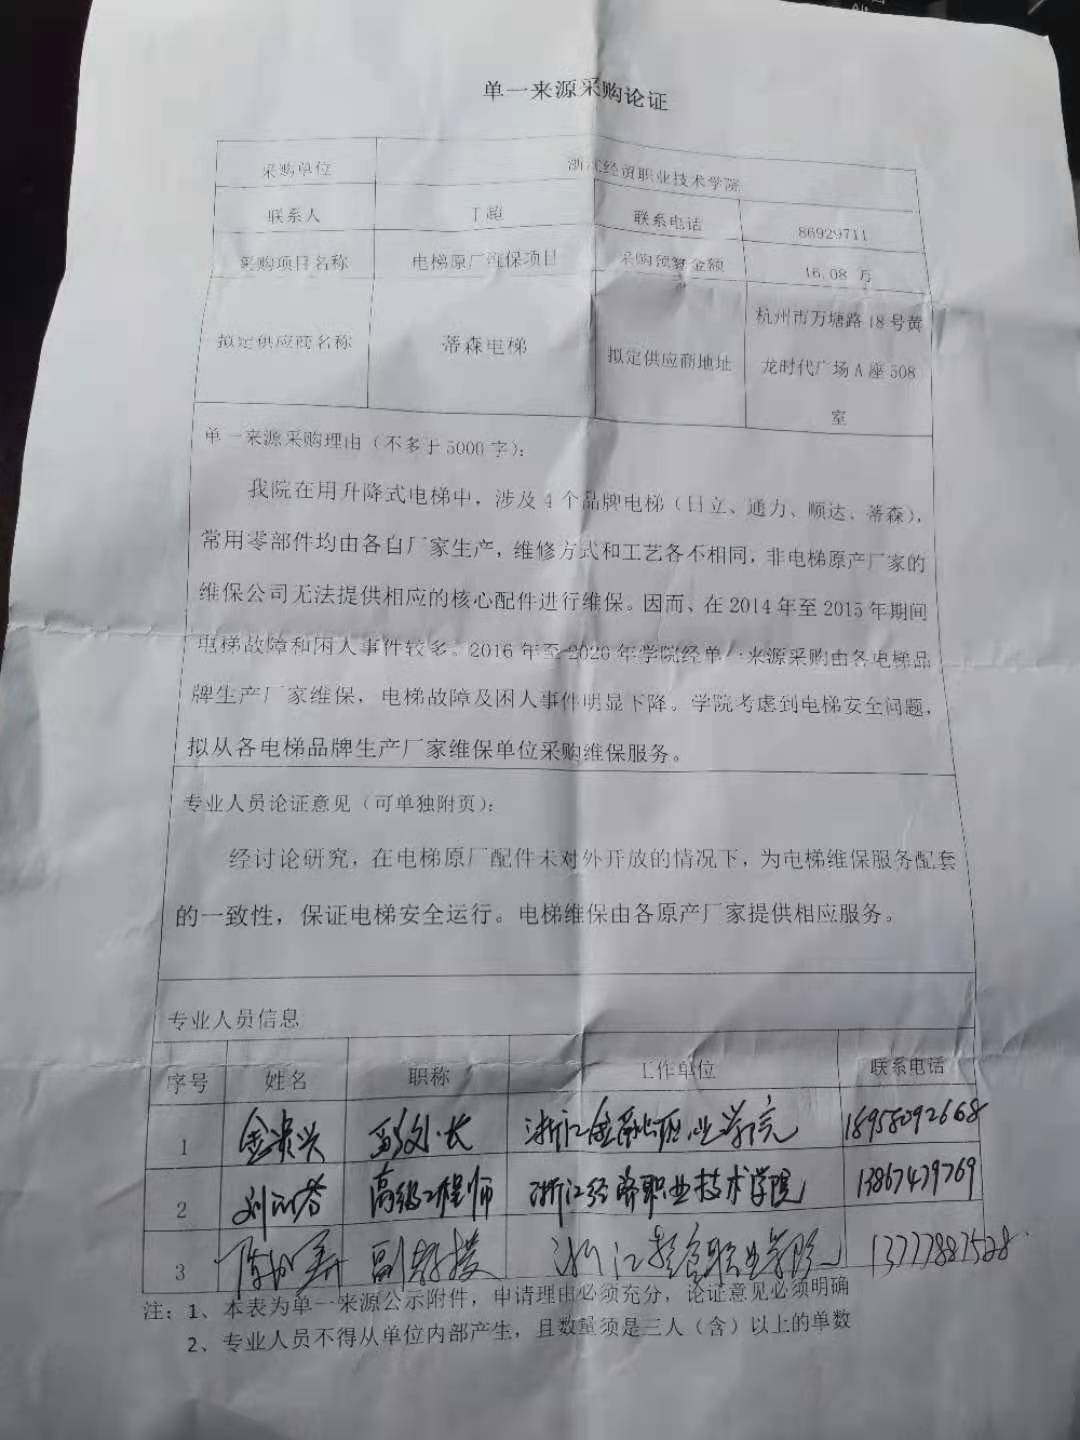 单一来源采购论证
采购单位 浙江经贸职业技术学院
联系人 丁超 联系电话 86929711
采购项目名称 电梯原厂维保项目 采购预算金额 16.08 万
拟定供应商名称 蒂森电梯 拟定供应商地址 杭州市万塘路 18 号黄
龙时代广场 A 座 508
室
单一来源采购理由（不多于 5000 字）：
我院在用升降式电梯中，涉及 4 个品牌电梯（日立、通力、顺达、蒂森），
常用零部件均由各自厂家生产，维修方式和工艺各不相同，非电梯原产厂家的
维保公司无法提供相应的核心配件进行维保。因而、在 2014 年至 2015 年期间
电梯故障和困人事件较多。2016 年至 2020 年学院经单一来源采购由各电梯品
牌生产厂家维保，电梯故障及困人事件明显下降。学院考虑到电梯安全问题，
拟从各电梯品牌生产厂家维保单位采购维保服务。
专业人员论证意见（可单独附页）：
经讨论研究，在电梯原厂配件未对外开放的情况下，为电梯维保服务配套
的一致性，保证电梯安全运行。电梯维保由各原产厂家提供相应服务。
专业人员信息
序号 姓名 职称 工作单位 联系电话
1 副处长 浙江金融职业学院
2 高级工程师 浙江经济职业技术学院 13867479769
3 副教授 13777887528
注：1、本表为单一来源公示附件，申请理由必须充分，论证意见必须明确
2、专业人员不得从单位内部产生，且数量须是三人（含）以上的单数